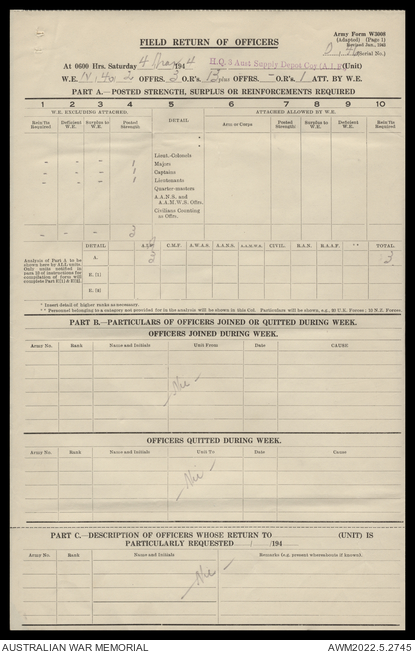 Army Form W3008
(Adapted) (Page 1)
Revised Jan., 1943
(Serial No.)
FIELD RETURN OF OFFICERS
At 0600 Hrs. Saturday 4 194 4 H.Q. 3 Aust Supply Depot Coy (A.I.F) (Unit)
W.E. 2 OFFRS. 3 O.R's. 13 plus OFFRS. - O.R's. 1 ATT. BY W.E.
PART A.—POSTED STRENGTH, SURPLUS OR REINFORCEMENTS REQUIRED
1 2 3 4 5 6 7 8 9 10
W.E. EXCLUDING ATTACHED. DETAIL ATTACHED ALLOWED BY W.E.
Rets/Nts Required Deficient W.E. Surplus to W.E. Posted Strength Arm or Corps Posted Strength Surplus to W.E. Deficient W.E. Rets/Nts Required
Lieut.-Colonels
- - 1 Majors
- - 1 Captains
- - 1 Lieutenants
Quarter-masters
A.A.N.S. and
A.A.M.W.S. Offrs.
Civilians Counting
as Offrs.
- - - 3
DETAIL A.I.F. C.M.F. A.W.A.S. A.A.N.S. A.A.M.W.S. CIVIL. R.A.N. R.A.A.F. ** TOTAL.
Analysis of Part A to be
shown here by ALL units.
Only units notified in
para 10 of instructions for
compilation of form will
complete Part E(1) & E(2).
A. 3 3
E. (1)
E. (2)
* Insert detail of higher ranks as necessary.
** Personnel belonging to a category not provided for in the analysis will be shown in this Col. Particulars will be shown, e.g., 20 U.K. Forces; 10 N.Z. Forces.
PART B.—PARTICULARS OF OFFICERS JOINED OR QUITTED DURING WEEK.
OFFICERS JOINED DURING WEEK.
Army No. Rank Names and Initials Unit From Date CAUSE
Nil
OFFICERS QUITTED DURING WEEK.
Army No. Rank Name and Initials Unit To Date Cause
Nil
PART C.—DESCRIPTION OF OFFICERS WHOSE RETURN TO (UNIT) IS
PARTICULARLY REQUESTED / /194
Army No. Rank Names and Initials Remarks (e.g. present whereabouts if known).
Nil
AUSTRALIAN WAR MEMORIAL AWM2022.5.2745